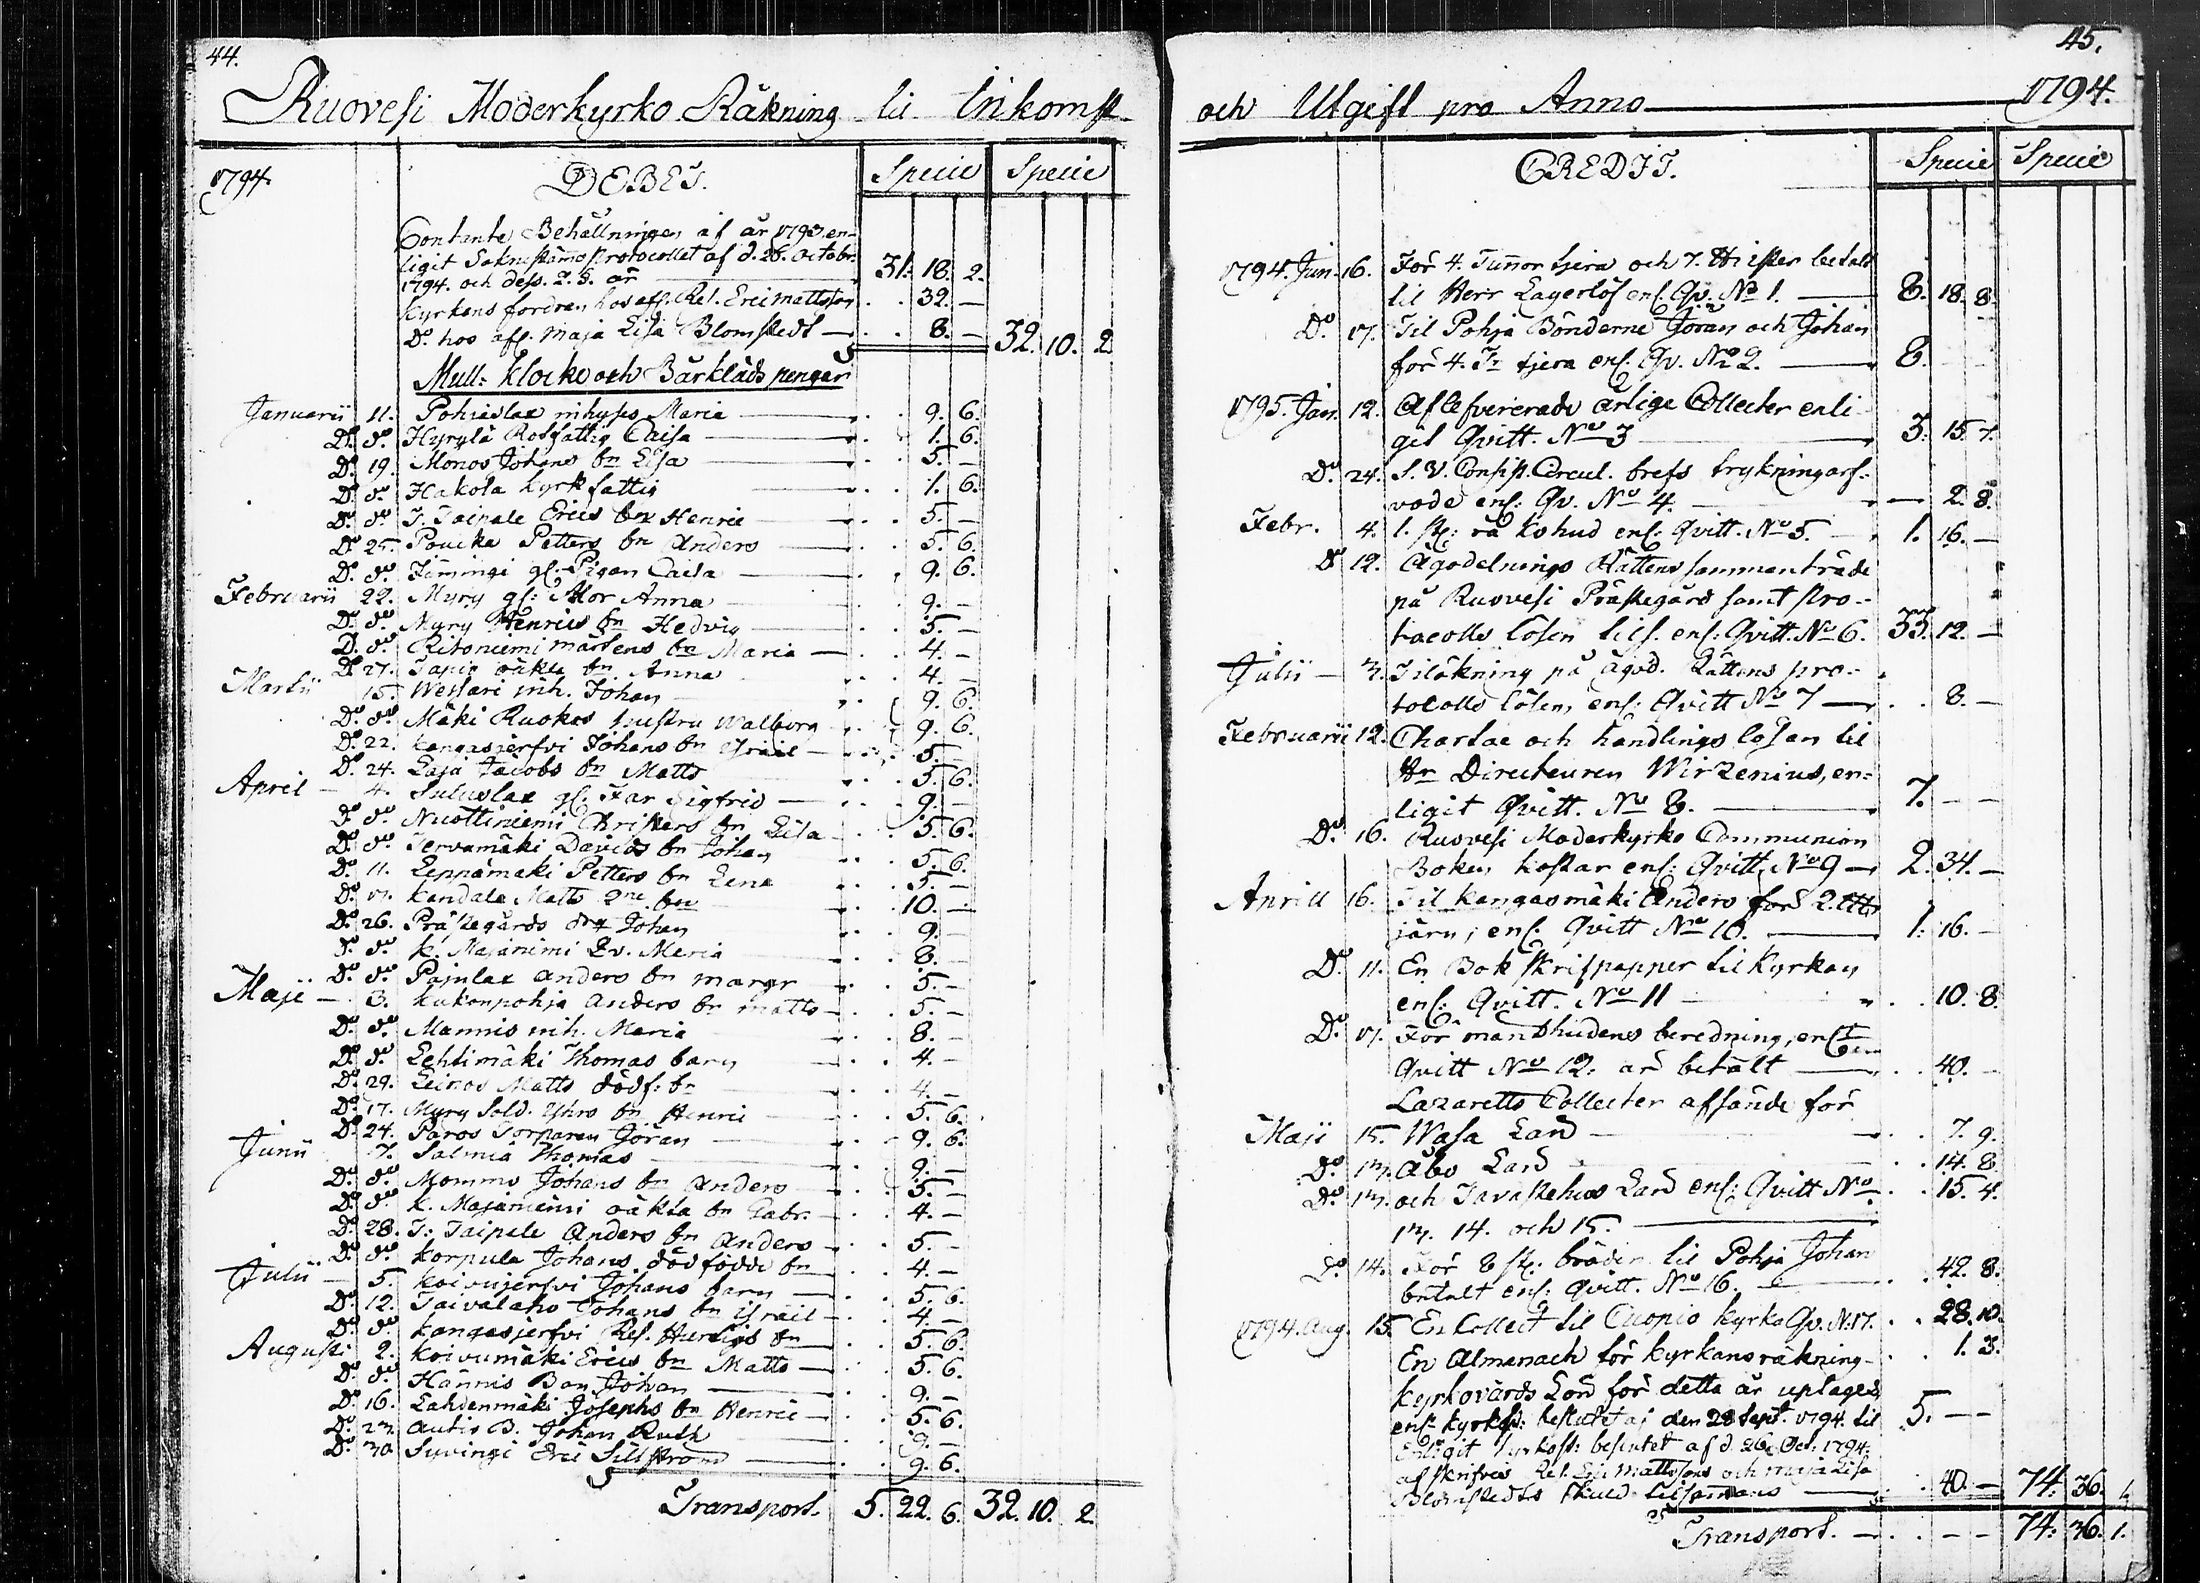 44.
Ruovesi Moderkyrko Räkning til Inkomst
1794. DEBET. Specie Specie
Contante Behållningen af år 1793. en-
ligit Soknestämo Protocollet af d. 26. Octobr.
1794. och dess 2. §. är 31. 18. 2.
Kyrkans fordran hos afl. Res. Eric Mattsson . . 32. —
Do. hos afl. Maja Lisa Blomstedt — . . 8. — 32. 10. 2
Mull: Klocko och Bårklåds pengar
Januarii 11. Pohjaslax inhyses Maria . . 9. 6.
Do. do Hyrylä Rotfattig Caisa . . 1. 6.
Do. 19. Monos Johans bn Lisa . . 5. —
Do. do Hakola kyrkfattig . . 1. 6.
Do. do J. Taipale Erics bn Henric . . 5. —
Do 25. Poucka Petters bn Anders . . 5. 6.
Do. do. Jimmingi gl. Pigan Caisa . . 9. 6.
Februarii 22. Myry gl: Mor Anna . . 9. —
Do. do Myry Henrics bn Hedvig . . 5. —
Do. do Ritoniemi Mårtens bn Maria . . 4. —
Do 27. Tapio oäkta bn Anna . . 4. —
Martii 15. Wessari inh. Johan . . 9. 6.
Do. do Mäki Ruokos hustru Walborg . . 9. 6.
Do. 22. Kangasjerfvi Johans bn Israel . . 5. —
Do. 24. Laja Jacobs bn Matts . . 5. 6.
April — 4. gl. Far Sigfrid . . 9. —
Do. do Nuottiniemi Christers bn Lisa . . 5. 6.
Do. do Tervamäki Davids bn Johan . . 5. 6.
Do. 11. Leppämäki Petters bn Lena . . 5. —
Do. 17. Kandala Matts 2ne bn . . 10. —
Do. 26. Prästegårds Johan . . 9. —
Do. do K. Majanimi Maria . . 8. —
Do. do Pajulax Anders bn Margr . . 5. —
Maji — 3. Kukonpohja Anders bn Matts . . 5. —
Do. do. Mannis inh. Maria . . 8. —
Do. do Lehtimäki Thomas barn . . 4. —
Do. 29. Leinos Matts dödf: bn . . 4. —
Do. 17. Myry Sold. bn Henric . . 5. 6.
Do 24. Paros Torparen Göran . . 9. 6.
Junii 7. Salmia Thomas . . 9. —
Do. do. Mommo Johans bn Anders . . 5. —
Do. do K. Majaniemi oäkta bn Gabr. . . 4. —
Do. 28. J: Taipale Anders bn Anders . . 5. —
Do. do Korpula Johans dödfödde bn . . 4. —
Julii — 5. Koivujerfvi Johans barn . . 5. 6.
Do. 12. Taivalaho Johans bn Israel . . 4. —
Do. do. Kangasjerfvi Res. bn . . 5. 6.
Augusti 2. Koivumäki Erics bn Matts . . 5. 6.
Do. do. Hannis Bon. Johan . . 9. —
Do. 16. Lahdenmäki Josephs bn Henric . . 5. 6.
Do. 23. Autio B. Johan Ruth . . 9. —
Do. 30. Suvingi Eric Sillström . . 9. 6.
Transport. 5. 22. 6. 32. 10. 2.
45.
och Utgift pro Anno 1794.
CREDIT. Specie Specie
1794. Jun. 16. För 4. Tunnor tjera och 7. betalt
til Herr Lagerlöf enl. Qv. No 1. 8. 18. 8.
Do 17. Til Pohja Bönderne Göran och Johan
för 4. Tr tjera enl. Qv. No 2. 8. — —
1795. Jan. 12. Aflefvererade årlige Collecter enli
git Qvitt. No 3 3. 15. 7.
Do. 24. S. V. Consist. Circul. brefs trykningarf-
vode enl: Qv. No 4. — 2. 8.
Febr. 4. 1. st: rå Kohud enl: Qvitt. No 5. 1. 16. —
Do 12. Ägodelnings Rättens sammanträde
på Ruovesi Prästegård samt Pro-
tocolls lösen tils. enl: Qvitt. No 6. 33. 12. —
Julii — 3. Tilökning på ägod. Rättens pro-
tocolls lösen, enl: Qvitt No 7 — . . 8. —
Februarii 12. Chartae och handlings lösen til
Hr Directeuren Wirzenius, en-
ligit Qvitt. No 8. 7. — —
Do. 16. Ruovesi Moderkyrko Communion
Boken kostar enl: Qvitt. No 9 — 2. 34. —
Aprill 16. Til Kangasmäki Anders för 2.
järn, enl. Qvitt No 10. 1. 16. —
Do. 11. En Bok skrifpapper til Kyrkan
enl: Qvitt. No 11 . . 10. 8.
Do. 17. För hudens beredning, enl:
Qvitt No 12. är betalt . . 40. —
Lazaretts Collecter afsände för
Maji 15. Wasa Län . . 7. 9.
Do. 13. Åbo Län . . 14. 8.
Do. 13. och Tavastehus Län enl: Qvitt No. . . 15. 4.
13. 14. och 15.
Do. 14. För 8 st: bräder til Pohja Johan
betalt enl: Qvitt. No 16. . . 42. 8.
1794. Aug. 15. En Collect til Cuopio Kyrka Qv. N. 17. . . 28. 10.
En Almanach för Kyrkans räkning . . 1. 3.
Kyrkovärds Lön för detta år uptages
enl: Kyrkost: beslutet af den 28 Sept. 1794. til 5. — —
Enligit Kyrkost: beslutet af d. 26. Oct. 1794.
afskrifves Res. Eric Mattssons och Maja Lisa
Blomstedts skuld tilsammans . . 40. — 74. 36. 1.
Transport. — . . — — 74. 36. 1.